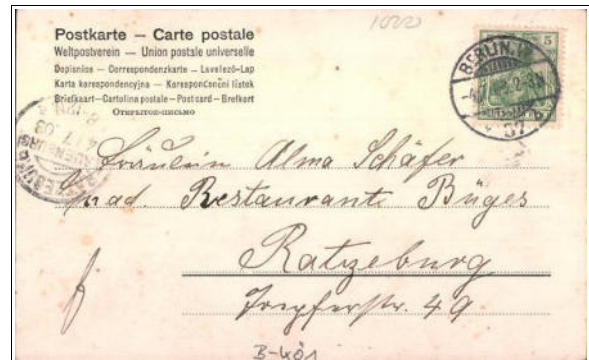 1020
Postkarte — Carte postale
Weltpostverein — Union postale universelle
Dopisnice — Correspondenzkarte — Levelező-Lap
Karta korespondencyjna — Korespondenční lístek
Briefkaart — Cartolina postale — Post card — Brefkort
Открытое письмо
5
BERLIN.W
57
4.7.03
Fräulein Alma Schäfer
ad. Restaurante Büges
Ratzeburg
49